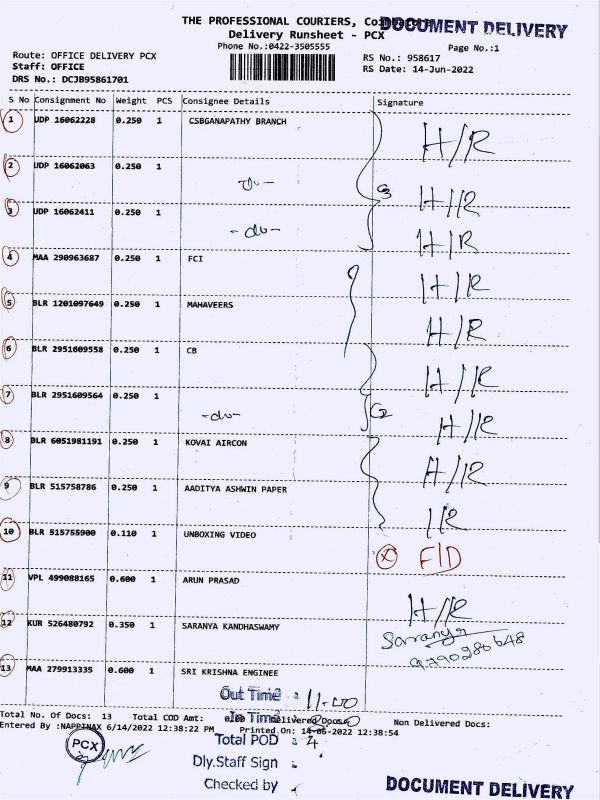 THE PROFESSIONAL COURIERS, Coimbatore
DOCUMENT DELIVERY
Delivery Runsheet - PCX
Phone No.:0422-3505555
Page No.:1
Route: OFFICE DELIVERY PCX
RS No.: 958617
Staff: OFFICE
RS Date: 14-Jun-2022
DRS No.: DCJB95861701
S No Consignment No Weight PCS Consignee Details Signature
1 UDP 16062228 0.250 1 CSBGANAPATHY BRANCH H/R
2 UDP 16062063 0.250 1 -do- H/R
3 UDP 16062411 0.250 1 -do- H/R
4 MAA 290963687 0.250 1 FCI H/R
5 BLR 1201097649 0.250 1 MAHAVEERS H/R
6 BLR 2951609558 0.250 1 CB H/R
7 BLR 2951609564 0.250 1 -do- H/R
8 BLR 6051981191 0.250 1 KOVAI AIRCON H/R
9 BLR 515758786 0.250 1 AADITYA ASHWIN PAPER
10 BLR 515755900 0.110 1 UNBOXING VIDEO F/D
11 VPL 499088165 0.600 1 ARUN PRASAD H/R
12 KUR 526480792 0.350 1 SARANYA KANDHASWAMY Saranya
13 MAA 279913335 0.600 1 SRI KRISHNA ENGINEE
Out Time : 11.00
Total No. Of Docs: 13 Total COD Amt: 0.00 Delivered Docs: Non Delivered Docs:
In Time
Entered By :NAPPINAX 6/14/2022 12:38:22 PM Printed On: 14-06-2022 12:38:54
Total POD : 4
PCX
Dly.Staff Sign :
Checked by
DOCUMENT DELIVERY